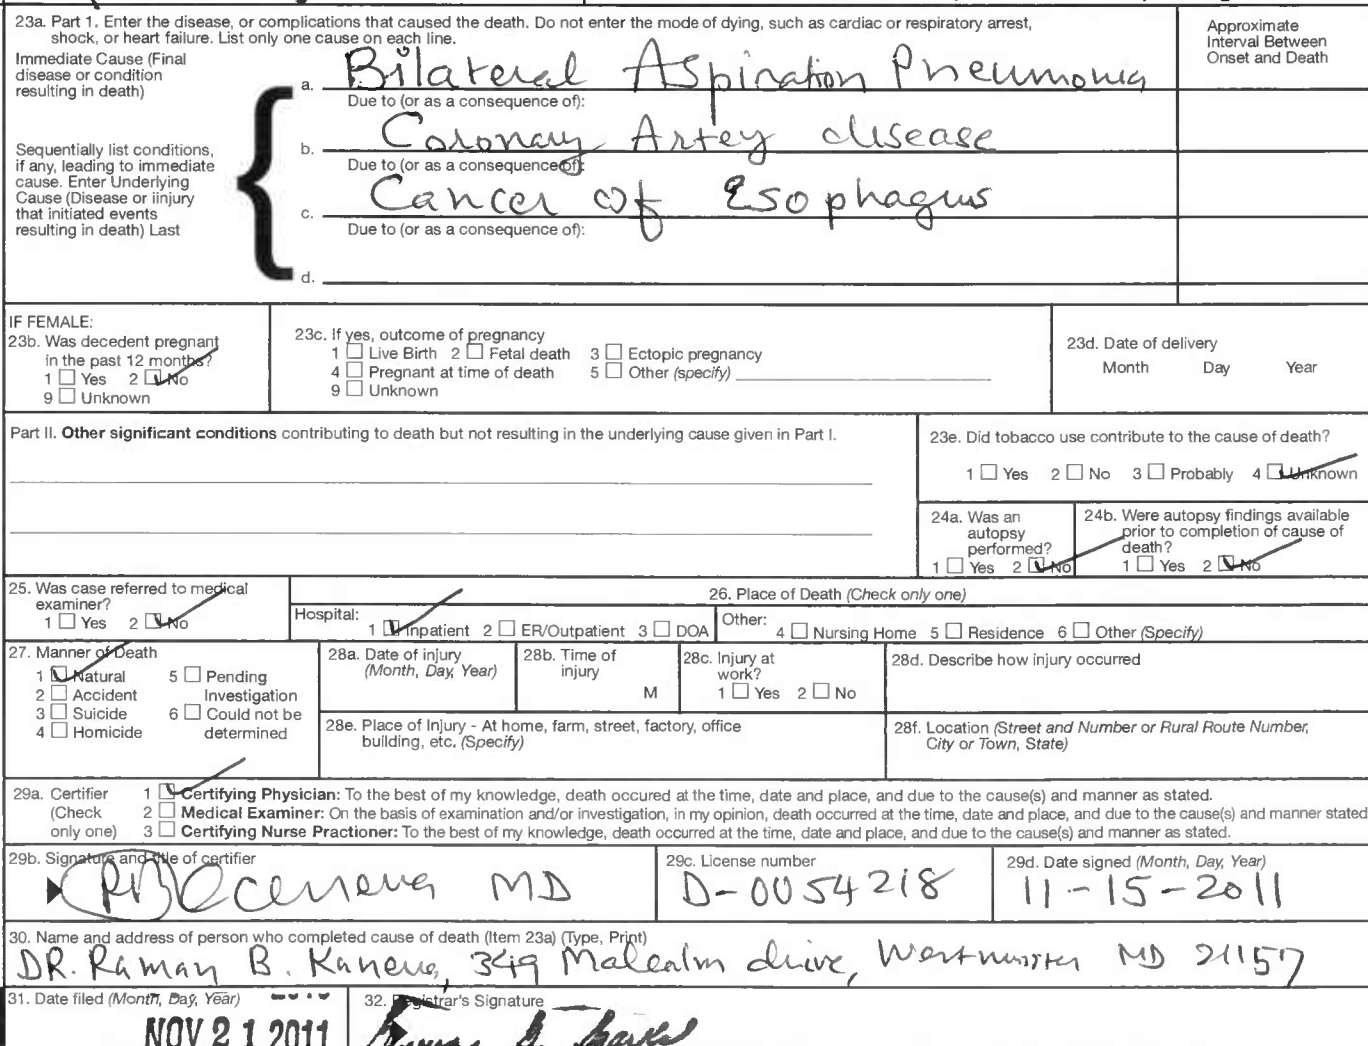 23a. Part 1. Enter the disease, or complications that caused the death. Do not enter the mode of dying, such as cardiac or respiratory arrest,
shock, or heart failure. List only one cause on each line.
Approximate
Interval Between
Onset and Death
Immediate Cause (Final
disease or condition
resulting in death)
a. Bilateral Aspiration Pneumonia
Due to (or as a consequence of):
Sequentially list conditions,
if any, leading to immediate
cause. Enter Underlying
Cause (Disease or iinjury
that initiated events
resulting in death) Last
b. Coronary Artey disease
Due to (or as a consequence of):
c. Cancer of Esophagus
Due to (or as a consequence of):
d.
IF FEMALE:
23b. Was decedent pregnant
in the past 12 months?
1 Yes 2 No
9 Unknown
23c. If yes, outcome of pregnancy
1 Live Birth 2 Fetal death 3 Ectopic pregnancy
4 Pregnant at time of death 5 Other (specify)
9 Unknown
23d. Date of delivery
Month Day Year
Part II. Other significant conditions contributing to death but not resulting in the underlying cause given in Part I.
23e. Did tobacco use contribute to the cause of death?
1 Yes 2 No 3 Probably 4 Unknown
24a. Was an
autopsy
performed?
1 Yes 2 No
24b. Were autopsy findings available
prior to completion of cause of
death?
1 Yes 2 No
25. Was case referred to medical
examiner?
1 Yes 2 No
26. Place of Death (Check only one)
Hospital:
1 Inpatient 2 ER/Outpatient 3 DOA
Other:
4 Nursing Home 5 Residence 6 Other (Specify)
27. Manner of Death
1 Natural 5 Pending
2 Accident Investigation
3 Suicide 6 Could not be
4 Homicide determined
28a. Date of injury
(Month, Day, Year)
28b. Time of
injury
M
28c. Injury at
work?
1 Yes 2 No
28d. Describe how injury occurred
28e. Place of Injury - At home, farm, street, factory, office
building, etc. (Specify)
28f. Location (Street and Number or Rural Route Number,
City or Town, State)
29a. Certifier
(Check
only one)
1 Certifying Physician: To the best of my knowledge, death occured at the time, date and place, and due to the cause(s) and manner as stated.
2 Medical Examiner: On the basis of examination and/or investigation, in my opinion, death occurred at the time, date and place, and due to the cause(s) and manner stated
3 Certifying Nurse Practioner: To the best of my knowledge, death occurred at the time, date and place, and due to the cause(s) and manner as stated.
29b. Signature and title of certifier
MD
29c. License number
D-0054218
29d. Date signed (Month, Day, Year)
11-15-2011
30. Name and address of person who completed cause of death (Item 23a) (Type, Print)
DR. Raman B. Kaneva, 349 Malcalm drive, Westminster MD 21157
31. Date filed (Month, Day, Year)
NOV 21 2011
32. Registrar's Signature